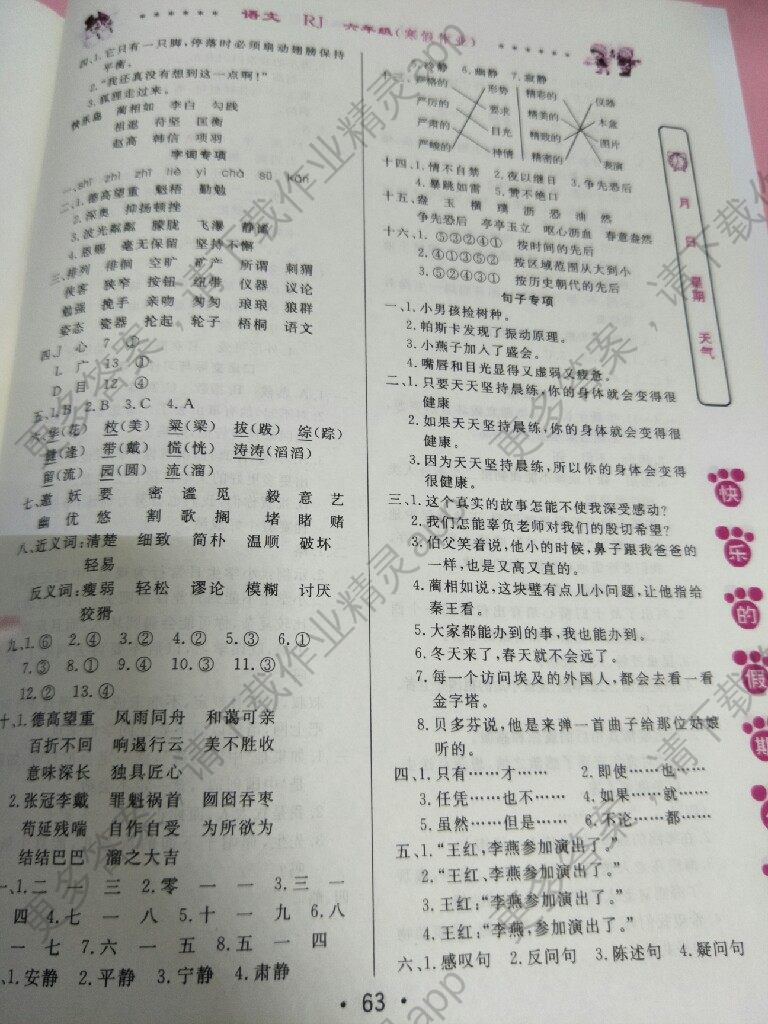 语文 RJ 六年级(寒假作业)
四、1.它只有一只脚,停落时必须扇动翅膀保持
平衡。
2.“我还真没有想到这一点啊!”
3.狐狸走过来。
快乐岛 蔺相如 李白 勾践
祖逖 苻坚 匡衡
赵高 韩信 项羽
字词专项
一、shī zhì zhī liè yì chà sū kǎn
二、1.德高望重 魁梧 勤勉
2.深奥 抑扬顿挫
3.波光粼粼 朦胧 飞瀑 静谧
4.恩赐 毫无保留 坚持不懈
三、排列 徘徊 空旷 矿产 所谓 刺猬
侠客 狭窄 按钮 纽带 仪器 议论
勉强 挽手 亲吻 匆匆 琅琅 狼群
姿态 瓷器 抡起 轮子 梧桐 语文
四、J 心 7 ①
L 广 13 ①
D 目 12 ④
五、1.B 2.B 3.C 4.A
六、华(花) 枚(美) 粱(梁) 拔(跋) 综(踪)
(逢) 带(戴) 慌(恍) 涛涛(滔滔)
留(流) 园(圆) 流(溜)
七、邀 妖 要 密 谧 觅 毅 意 艺
幽 优 悠 割 歌 搁 堵 睹 赌
八、近义词:清楚 细致 简朴 温顺 破坏
轻易
反义词:瘦弱 轻松 谬论 模糊 讨厌
狡猾
九、1.⑥ 2.④ 3.② 4.② 5.③ 6.①
7.③ 8.① 9.④ 10.③ 11.③
12.② 13.④
十、1.德高望重 风雨同舟 和蔼可亲
百折不回 响遏行云 美不胜收
意味深长 独具匠心
2.张冠李戴 罪魁祸首 囫囵吞枣
苟延残喘 自作自受 为所欲为
结结巴巴 溜之大吉
一、1.二 一 三 2.零 一 一 3.三 一
四 4.七 一 八 5.十 一 九 6.八
一 七 7.六 一 五 8.五 一 四
、1.安静 2.平静 3.宁静 4.肃静
5.冷静 6.幽静 7.寂静
十三、严格的 形势 精彩的 仪器
严厉的 要求 精美的 木盒
严肃的 目光 精致的 图片
严峻的 神情 精密的 表演
十四、1.情不自禁 2.夜以继日 3.争先恐后
4.暴跳如雷 5.赞不绝口
十五、盎 玉 横 璞 沥 恐 油 然
争先恐后 亭亭玉立 呕心沥血 春意盎然
十六、1.⑤③②④① 按时间的先后
2.④①③⑤② 按区域范围从大到小
3.⑤②④③① 按历史朝代的先后
句子专项
一、1.小男孩捡树种。
2.帕斯卡发现了振动原理。
3.小燕子加入了盛会。
4.嘴唇和目光显得又虚弱又疲惫。
二、1.只要天天坚持晨练,你的身体就会变得很
健康
2.如果天天坚持晨练,你的身体就会变得很
健康。
3.因为天天坚持晨练,所以你的身体会变得
很健康。
三、1.这个真实的故事怎能不使我深受感动?
2.我们怎能辜负老师对我们的殷切希望?
3.伯父笑着说,他小的时候,鼻子跟我爸爸的
一样,也是又高又直的。
4.蔺相如说,这块璧有点儿小问题,让他指给
秦王看。
5.大家都能办到的事,我也能办到。
6.冬天来了,春天就不会远了。
7.每一个访问埃及的外国人,都会去看一看
金字塔。
8.贝多芬说,他是来弹一首曲子给那位姑娘
听的。
四、1.只有……才…… 2.即使……也……
3.任凭……也不…… 4.如果……就……
5.虽然……但是…… 6.不论……都……
五、1.“王红,李燕参加演出了。”
2.“王红、李燕参加演出了。”
3.王红:“李燕参加演出了。”
4.王红:“李燕,参加演出了。”
六、1.感叹句 2.反问句 3.陈述句 4.疑问句
月 日 星期 天气
快乐的假期
·63·
更多答案,请下载作业精灵app